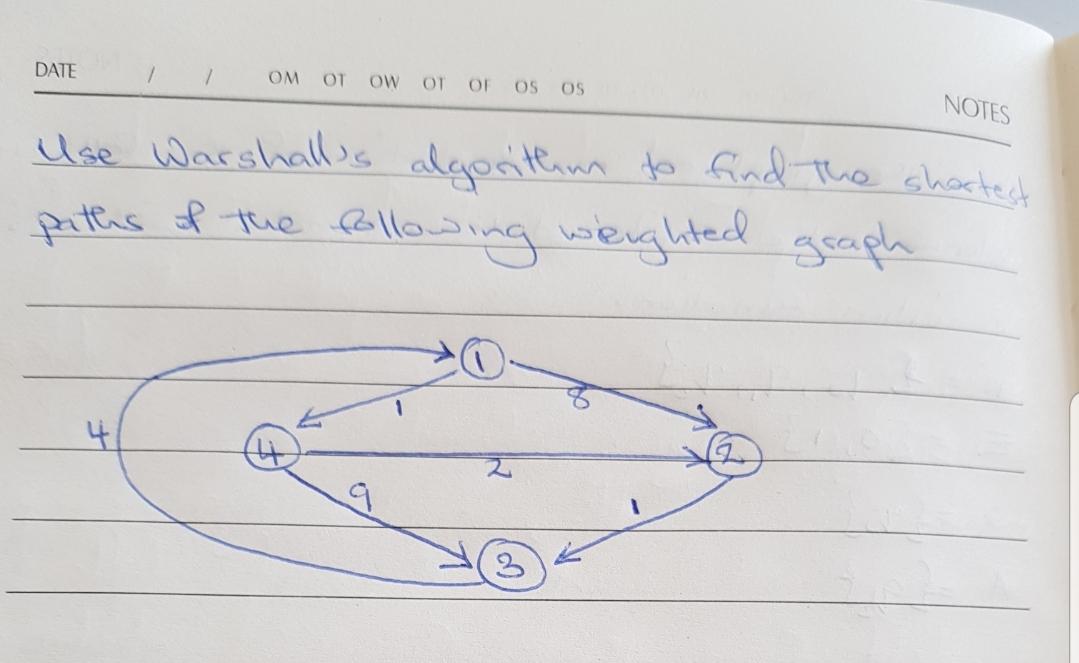 DATE / / OM OT OW OT OF OS OS
NOTES
Use Warshall's algorithm to find the shortest
paths of the following weighted graph
1
1
8
4
4
2
2
9
1
3